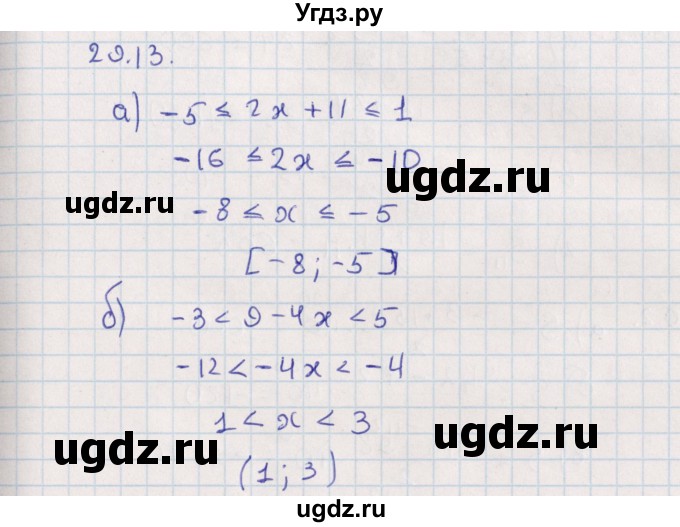 Угдз.ру
29.13.
а) -5 ≤ 2x + 11 ≤ 1
-16 ≤ 2x ≤ -10
ugdz.ru
ugdz.ru
-8 ≤ x ≤ -5
[-8; -5]
б) -3 < 9 - 4x < 5
-12 < -4x < -4
1 < x < 3
ugdz.ru
ugdz.ru
(1; 3)
ugdz.ru